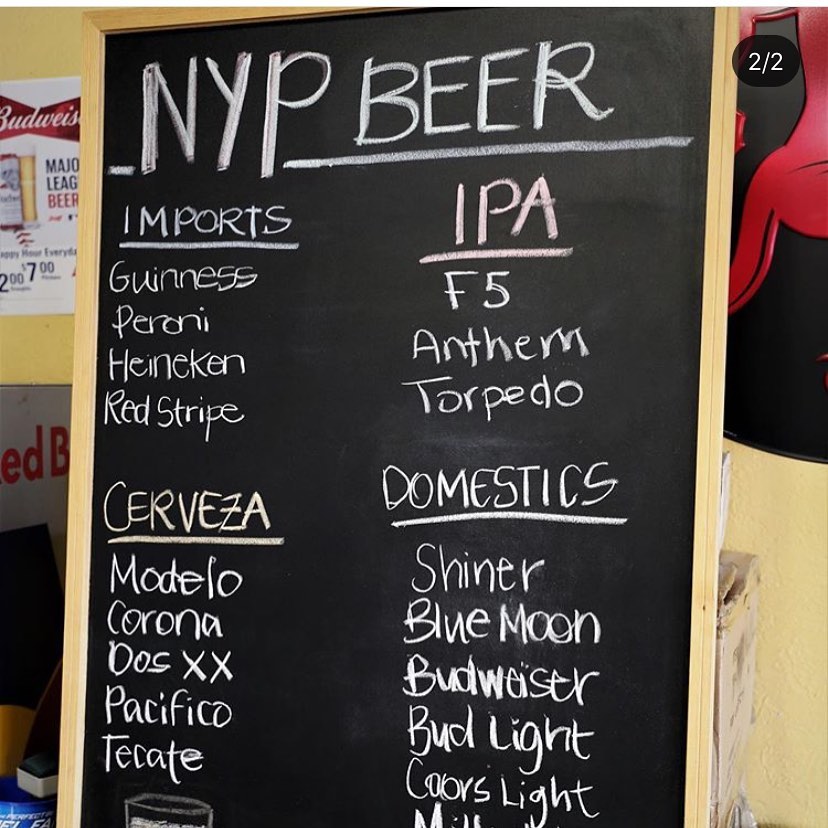 2/2
NYP BEER
IMPORTS
Guinness
Peroni
Heineken
Red Stripe
IPA
F5
Anthem
Torpedo
CERVEZA
Modelo
Corona
Dos XX
Pacifico
Tecate
DOMESTICS
Shiner
Blue Moon
Budweiser
Bud Light
Coors Light
Budweis
MAJO
LEAG
BEER
appy Hour Everyda
$7.00
ed B